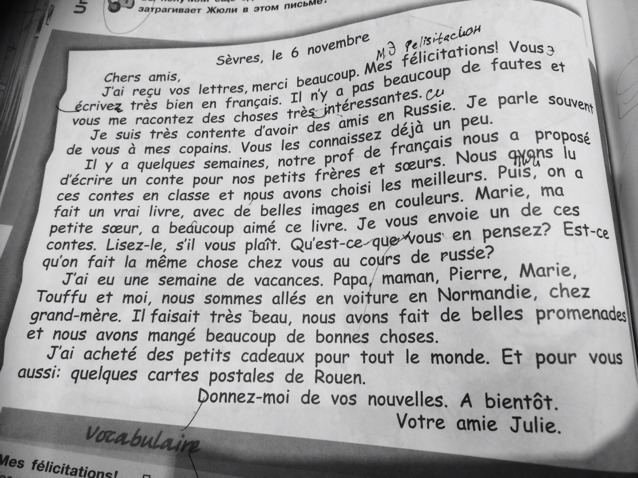 затрагивает Жюли в этом письме?
Sèvres, le 6 novembre
Chers amis,
J'ai reçu vos lettres, merci beaucoup. Mes félicitations! Vous
écrivez très bien en français. Il n'y a pas beaucoup de fautes et
vous me racontez des choses très intéressantes.
Je suis très contente d'avoir des amis en Russie. Je parle souvent
de vous à mes copains. Vous les connaissez déjà un peu.
Il y a quelques semaines, notre prof de français nous a proposé
d'écrire un conte pour nos petits frères et sœurs. Nous avons lu
ces contes en classe et nous avons choisi les meilleurs. Puis, on a
fait un vrai livre, avec de belles images en couleurs. Marie, ma
petite sœur, a beaucoup aimé ce livre. Je vous envoie un de ces
contes. Lisez-le, s'il vous plaît. Qu'est-ce que vous en pensez? Est-ce
qu'on fait la même chose chez vous au cours de russe?
J'ai eu une semaine de vacances. Papa, maman, Pierre, Marie,
Touffu et moi, nous sommes allés en voiture en Normandie, chez
grand-mère. Il faisait très beau, nous avons fait de belles promenades
et nous avons mangé beaucoup de bonnes choses.
J'ai acheté des petits cadeaux pour tout le monde. Et pour vous
aussi: quelques cartes postales de Rouen.
Donnez-moi de vos nouvelles. A bientôt.
Votre amie Julie.
Vocabulaire
Mes félicitations!